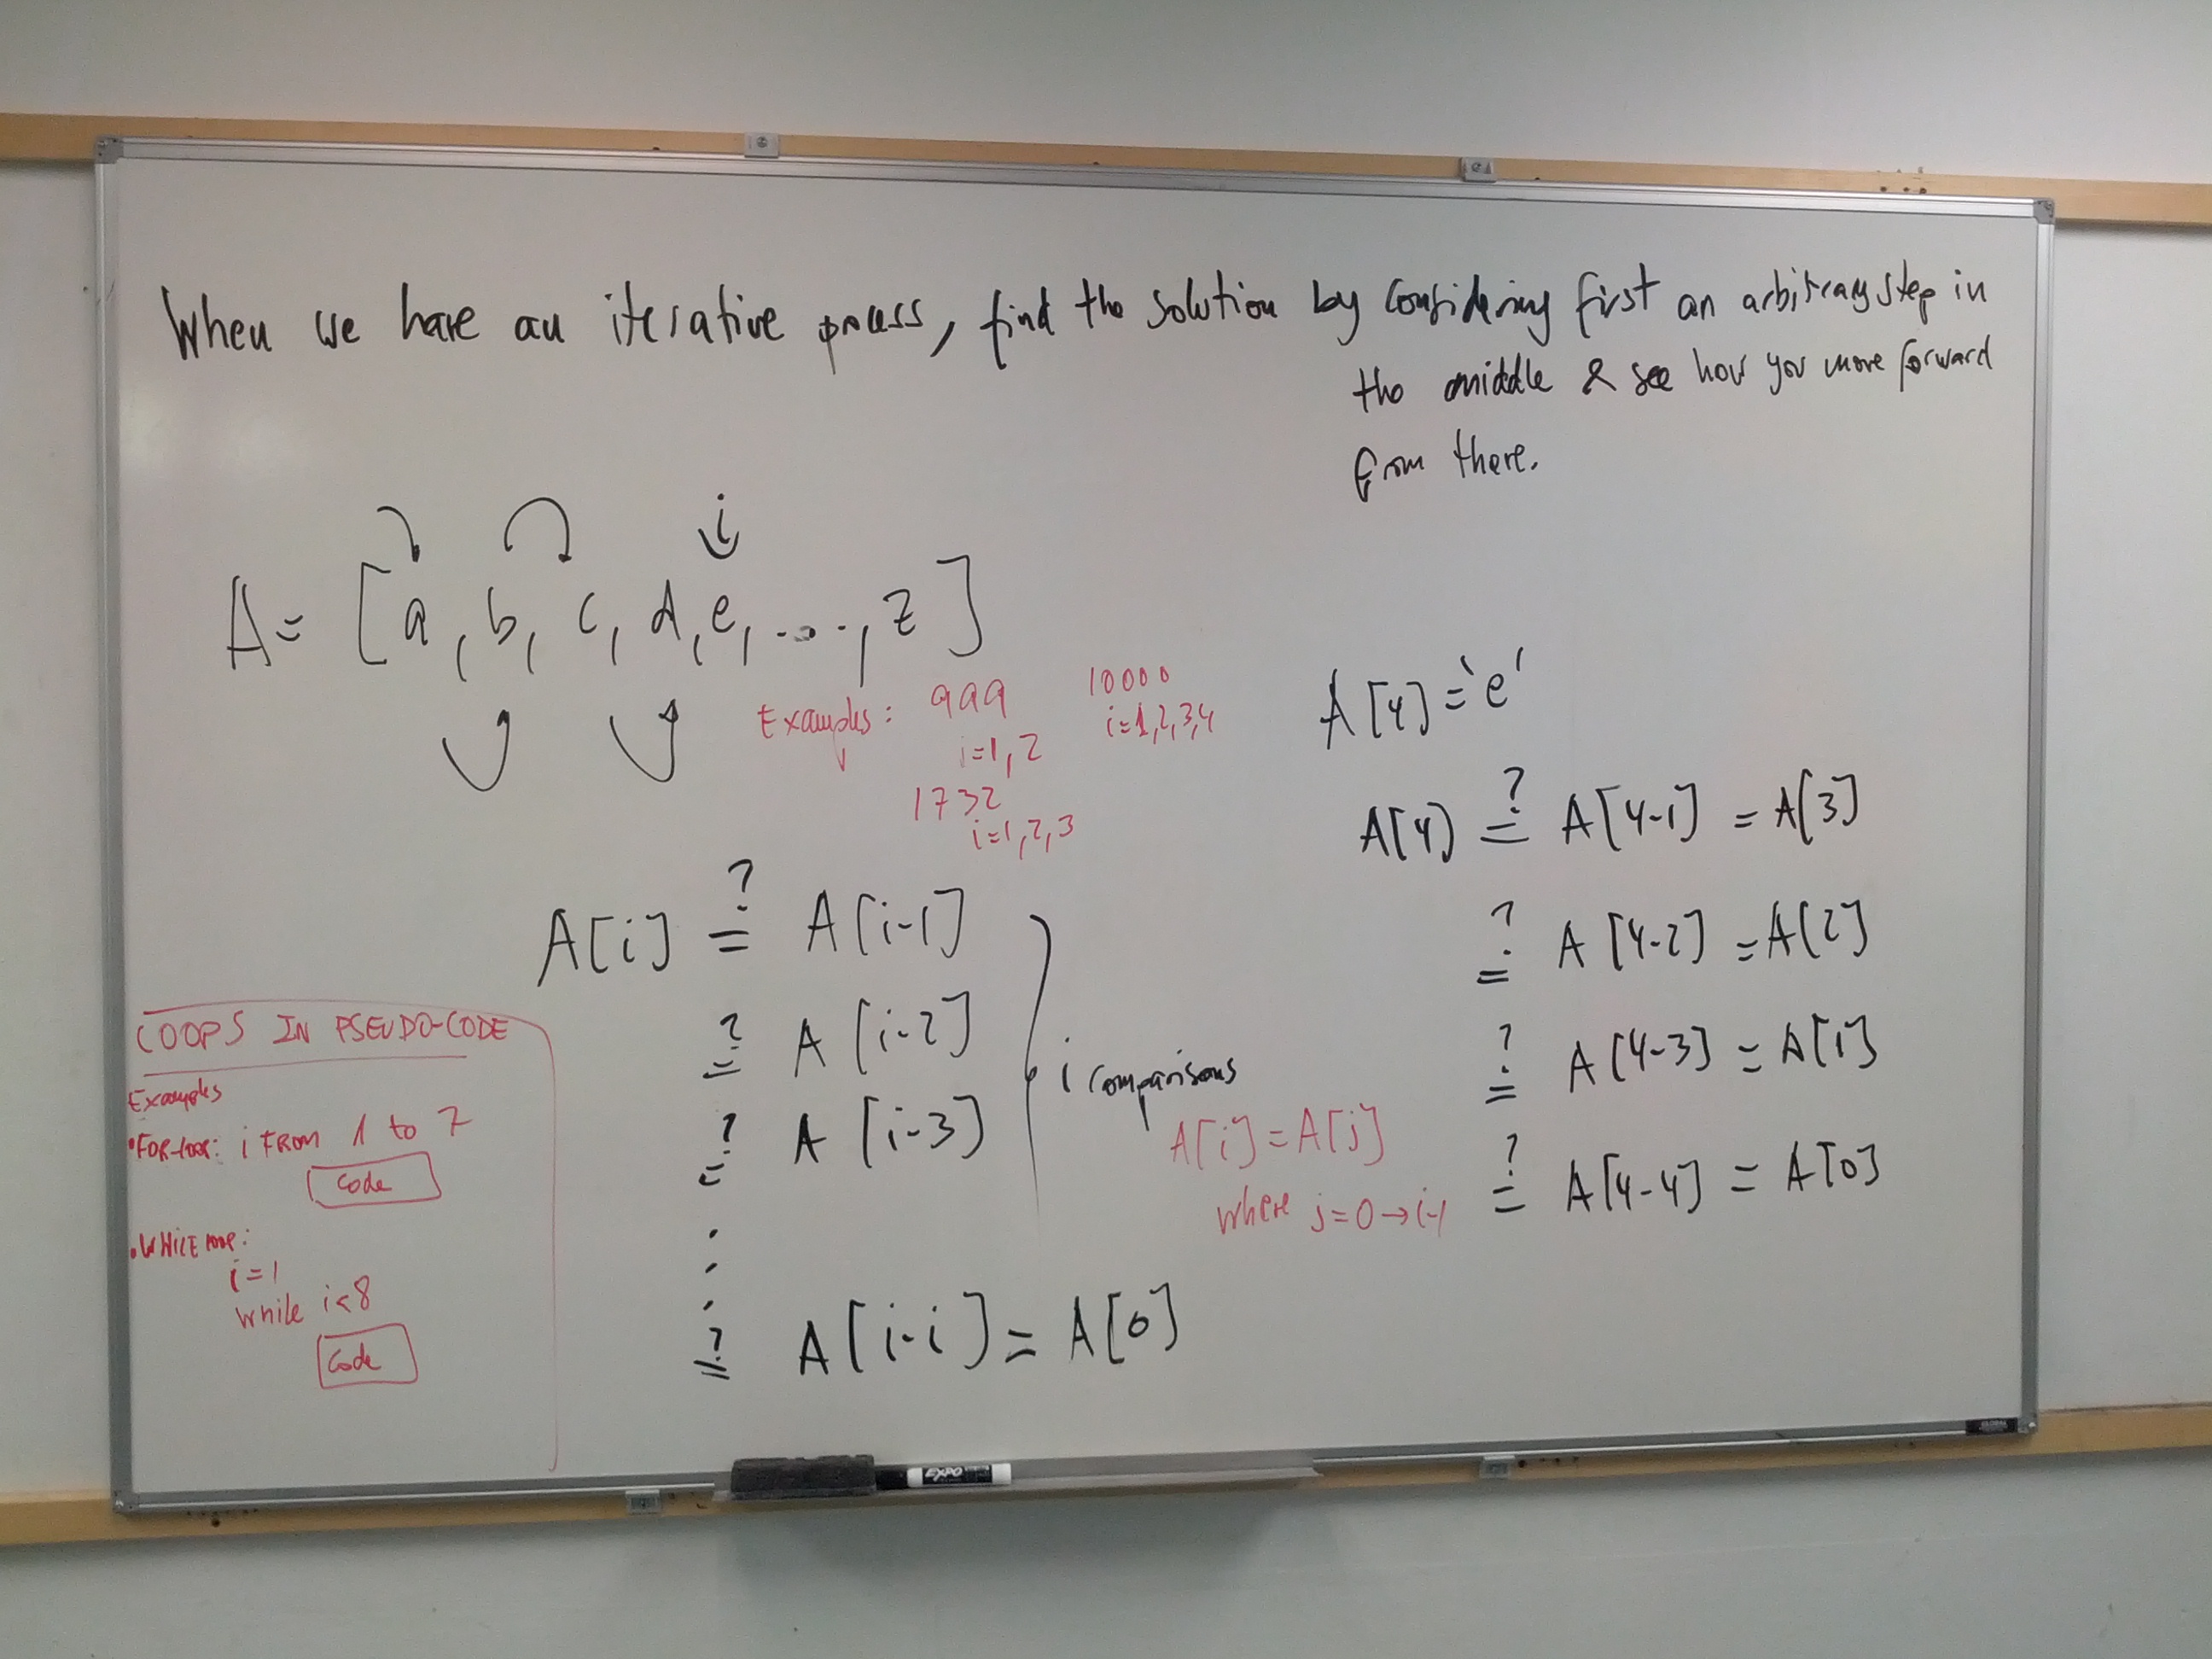 When we have an iterative process, find the solution by considering first an arbitrary step in
the middle & see how you move forward
from there.
i
A = [a, b, c, d, e, ...., z]
Examples: 999 10000
i=1,2 i=1,2,3,4
1732
i=1,2,3
A[i] ?= A[i-1]
?= A[i-2]
?= A[i-3]
i comparisons
.
.
.
?= A[i-i] = A[0]
A[i]=A[j]
where j=0→i-1
A[4] = 'e'
A[4] ?= A[4-1] = A[3]
?= A[4-2] = A[2]
?= A[4-3] = A[1]
?= A[4-4] = A[0]
LOOPS IN PSEUDO-CODE
Examples
• FOR-LOOP: i FROM 1 to 7
Code
• WHILE LOOP:
i=1
while i<8
Code
EXPO
GLOBAL